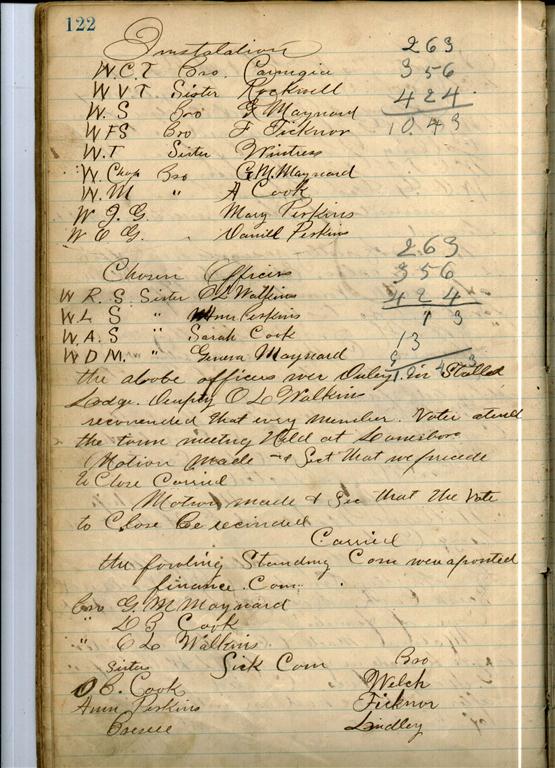 122
Instalation 263
W.C.T Bro. Carnugia 356
W V T Sister Rockwell 424
W. S Bro F Maynard 10.43
W FS Bro F Ticknor
W.T Sister Wintress
W. Chap Bro G.M.Maynard
W. M " A Cook
W J. G. Mary Perkins
W O G. Daniel Perkins
263
Chosen Officers 356
W R. S. Sister O L Watkins 424
W L S " Ann Perkins 1 3
W. A. S " Sarah Cook 13
W D M. " Geneva Maynard
the above officers wer Duley in Stalled
Lodge. Deupty O L Walkins
recomended that evry member. Voter atend
the town meeting Held at Lanesboro
Motion Made & Sect that we procede
to Close Carried
Motion made & Sec that the Vote
to Close Be recinded
Carried
the fowling Standing Com wer aponted
finance. Com.
Bro G. M Maynard
" L B Cook
" O L Walkins
Sisters Sick Com Bro
O B. Cook Welch
Ann Perkins Ticknor
Lindley